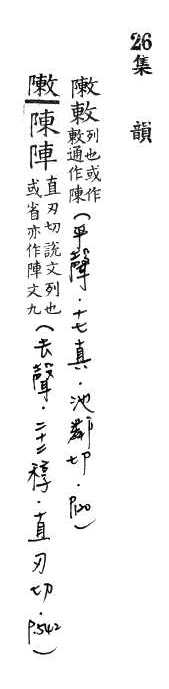 26集 韻
敶敕列也或作敕通作陳(平聲·十七真·池鄰切·P.120)
敶陳陣直刃切說文列也或省亦作陣文九(去聲·二十二稕·直刃切·P.542)